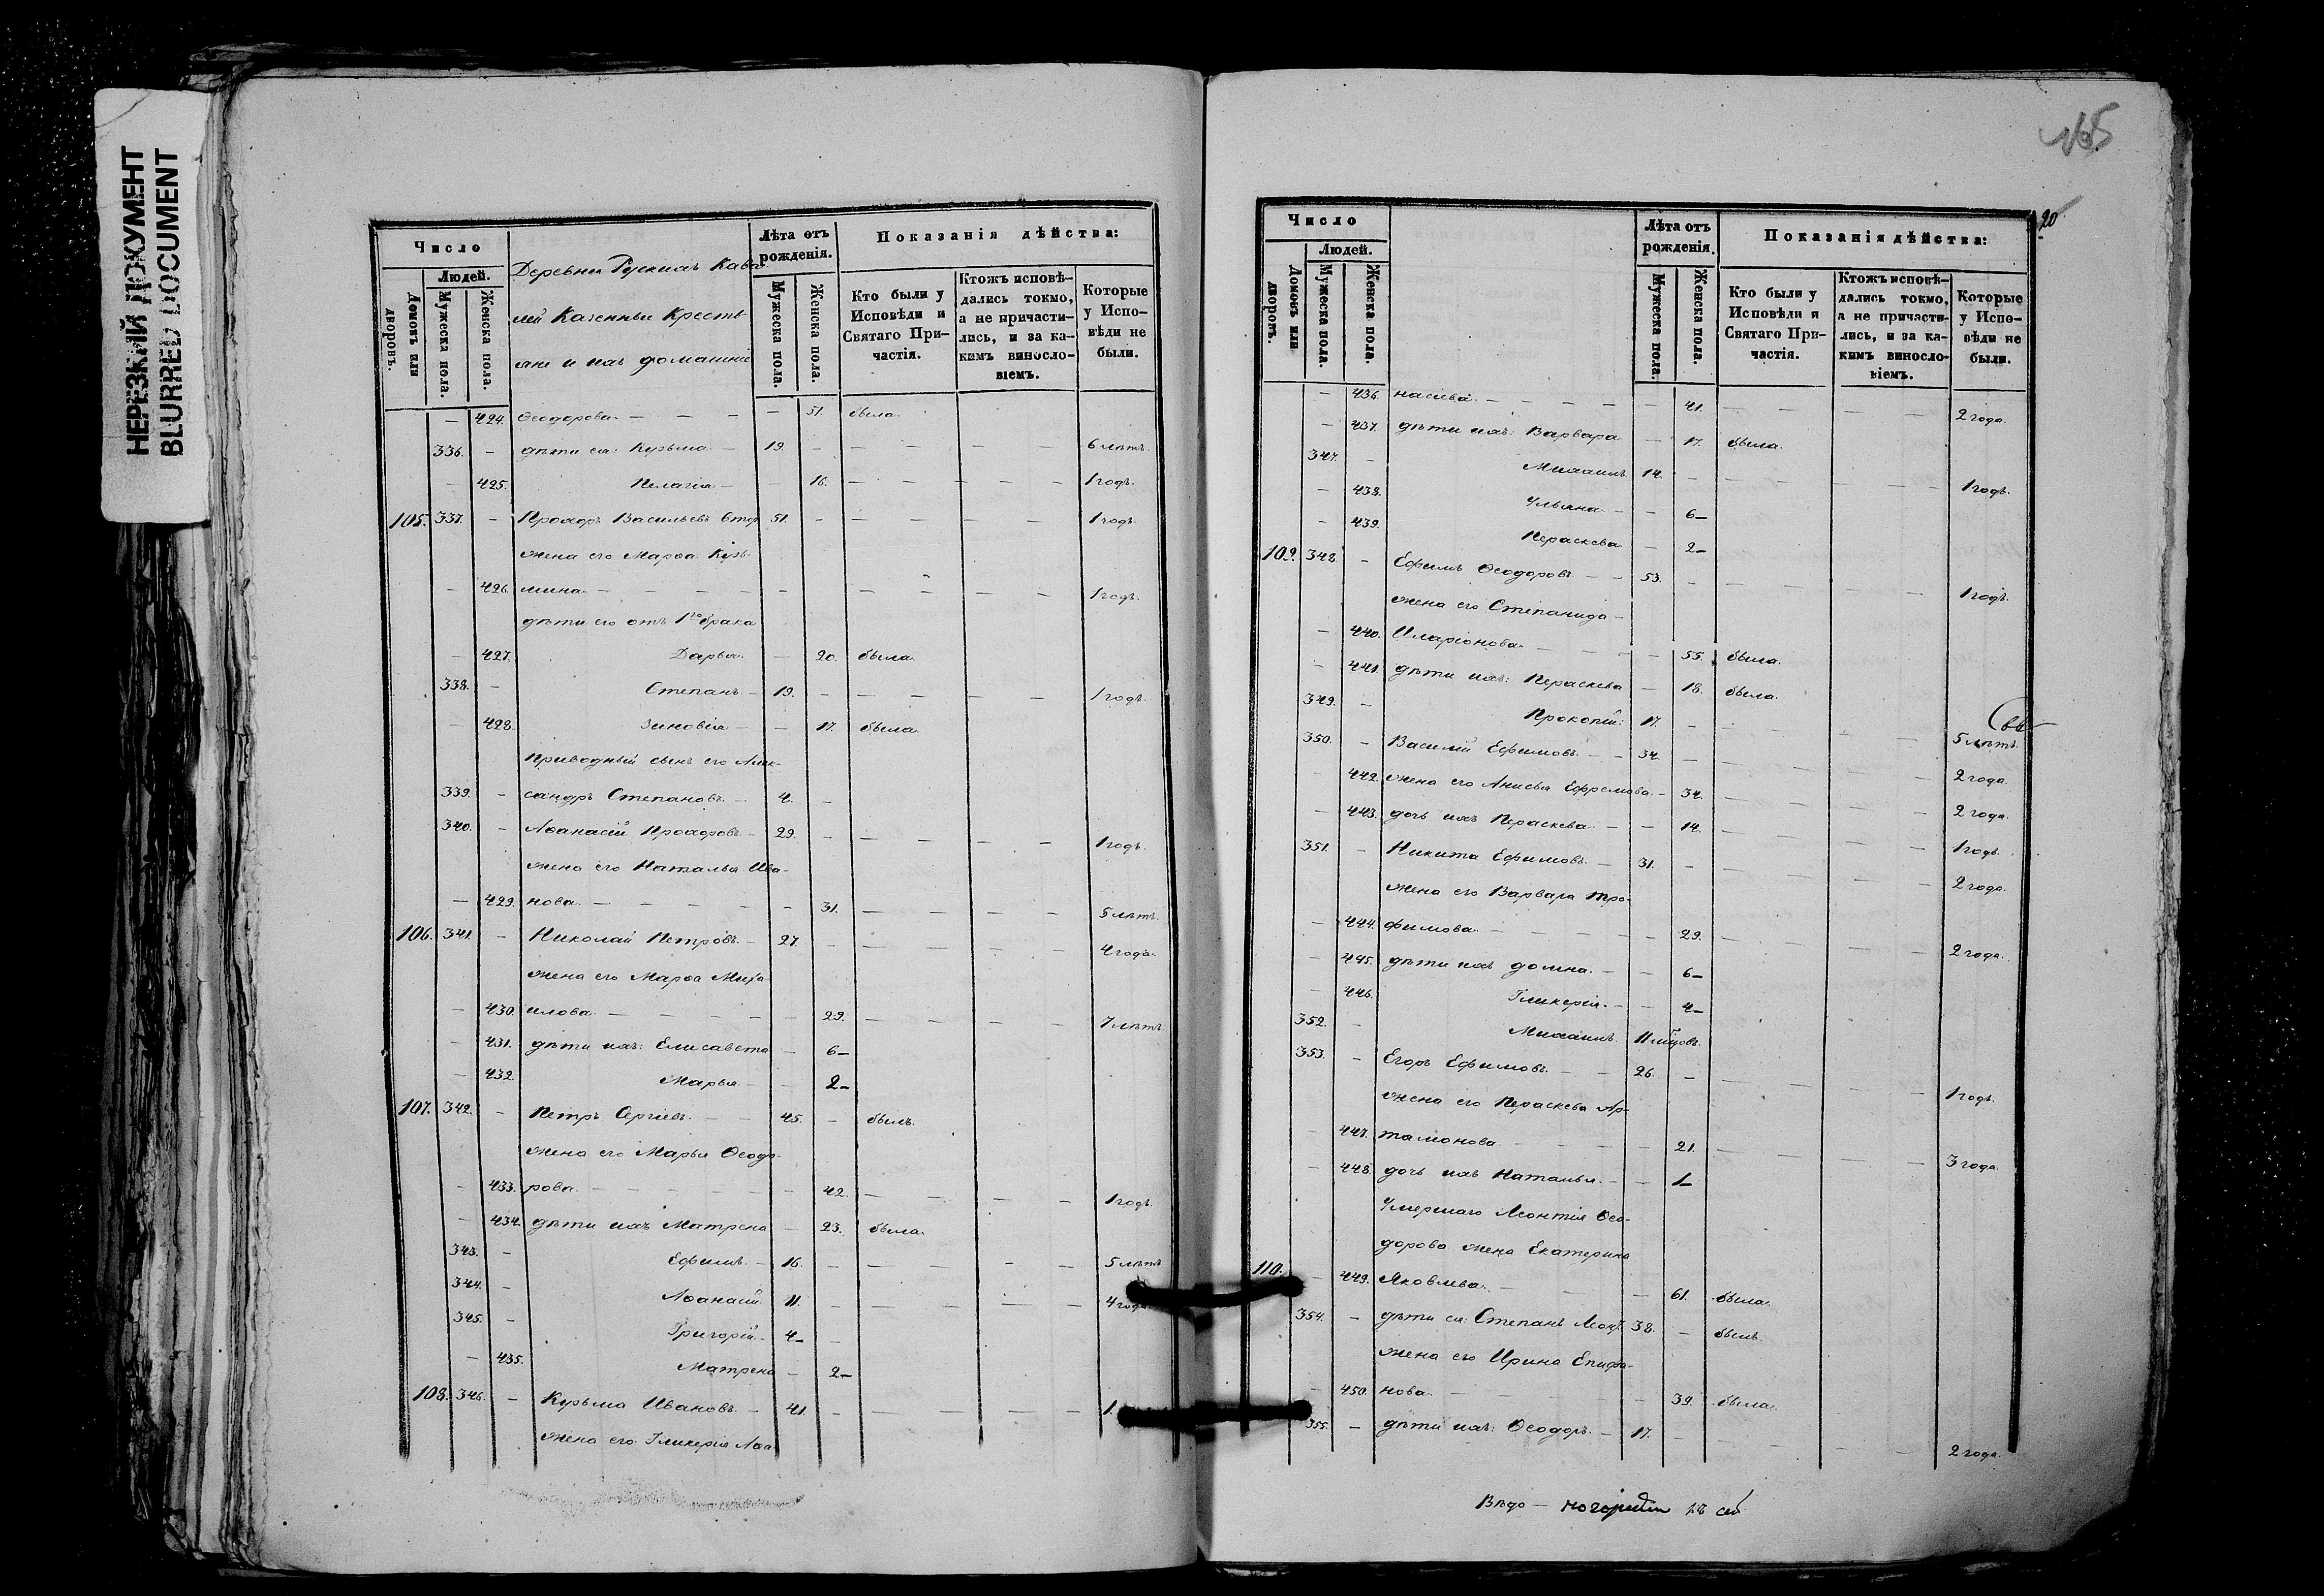 НЕРЕЗКИЙ ДОКУМЕНТ
BLURRED DOCUMENT
Число
Людей.
Домовъ или дворовъ.
Мужеска пола.
Женска пола.
Деревни Рускихъ Кава-
лей Казенные Кресть-
яне и ихъ домашніе
Лѣта отъ рожденія.
Мужеска пола.
Женска пола.
Показанія дѣйства:
Кто были у Исповѣди и Святаго При-частія.
Ктожъ исповѣ-дались токмо, а не причасти-лись, и за ка-кимъ винносло-віемъ.
Которые у Испо-вѣди не были.
— 424. Ѳеодорова — — — — 51. была.
336. — дѣти ея: Кузьма — 19. — — — — — 6 лѣтъ.
— 425. Пелагія — — 16. — — — — — 1 годъ.
105. 337. — Прохоръ Васильевъ Втор 51. — — — — — 1 годъ.
жена его Марѳа Кузь-
— 426. мина — — — — — — — — — 1 годъ.
дѣти его отъ 1го брака
— 427. Дарья — — 20. была.
338. — Степанъ — 19. — — — — — 1 годъ.
— 428. Зиновія — — 17. была.
Приводный сынъ его Алек-
339. — сандръ Степановъ. — 4. —
340. — Аѳанасій Прохоровъ — 29. — — — — — 1 годъ.
жена его Наталья Ива-
— 429. нова. — — — — — 31. — — — — 5 лѣтъ.
106. 341. — Николай Петровъ. — 27. — — — — — 4 года.
жена его Марѳа Миха
— 430. илова — — — — — 29. — — — — 7 лѣтъ.
— 431. дѣти ихъ: Елисавета — 6—
— 432. Марья — — 2—
107. 342. — Петръ Сергіевъ. — — 45. — былъ.
жена его Марья Ѳеодо-
— 433. рова. — — — — — 42. — — — — 1 годъ.
— 434. дѣти ихъ Матрена — 23. была.
343. — Ефимъ. — 16. — — — — — 5 лѣтъ
344. — Аѳанасій 11. — — — — — 4 года
345. — Григорій — 4— —
— 435. Матрена — 2—
108. 346. — Кузьма Ивановъ. — 41. — — — — — 1.
жена его Гликерія Аѳа
165
20
Число
Людей.
Домовъ или дворовъ.
Мужеска пола.
Женска пола.
Лѣта отъ рожденія.
Мужеска пола.
Женска пола.
Показанія дѣйства:
Кто были у Исповѣди и Святаго При-частія.
Ктожъ исповѣ-дались токмо, а не причасти-лись, и за ка-кимъ винносло-віемъ.
Которые у Испо-вѣди не были.
— 436. насіева. — — — — — 41. — — — — 2 года.
— 437. дѣти ихъ: Варвара — 17. была.
347. — Михаилъ 14. — — — — — 1 годъ.
— 438. Ульяна — — 6—
— 439. Пераскева — 2—
109. 348. — Ефимъ Ѳеодоровъ — — 53. — — — — — 1 годъ.
жена его Степанида —
— 440. Иларіонова. — — — — 55. была.
— 441. дѣти ихъ: Пераскева — 18. была.
349. — Прокопій: 17. — — — — — 5 лѣтъ.
350. — Василій Ефимовъ. — — 34. — — — — — 2 года.
— 442. жена его Анисья Ефремова. — 34. — — — — 2 года.
— 443. дочь ихъ Пераскева. — — 14. — — — — 1 годъ.
351. — Никита Ефимовъ. — 31. — — — — — 2 года.
жена его Варвара Тро-
— 444. фимова. — — — — — 29. — — — — 2 года.
— 445. дѣти ихъ Домна. — — 6—
— 446. Гликерія. — — 4—
352. — Михаилъ 11 мѣсяцовъ.
353. — Егоръ Ефимовъ. — — 26. — — — — — 1 годъ.
жена его Пераскева Ар-
— 447. тамонова — — — — 21. — — — — 3 года.
— 448. дочь ихъ Наталья. — — 1—
Умершаго Леонтія Ѳео-
дорова жена Екатерина
110. — 449. Яковлева. — — — — 61. была.
354. — дѣти ея: Степанъ Леонт 38. — былъ.
жена его Ирина Епифа-
— 450. нова. — — — — — 39. была.
355. — дѣти ихъ: Ѳеодоръ. — 17. — — — — — 2 года.